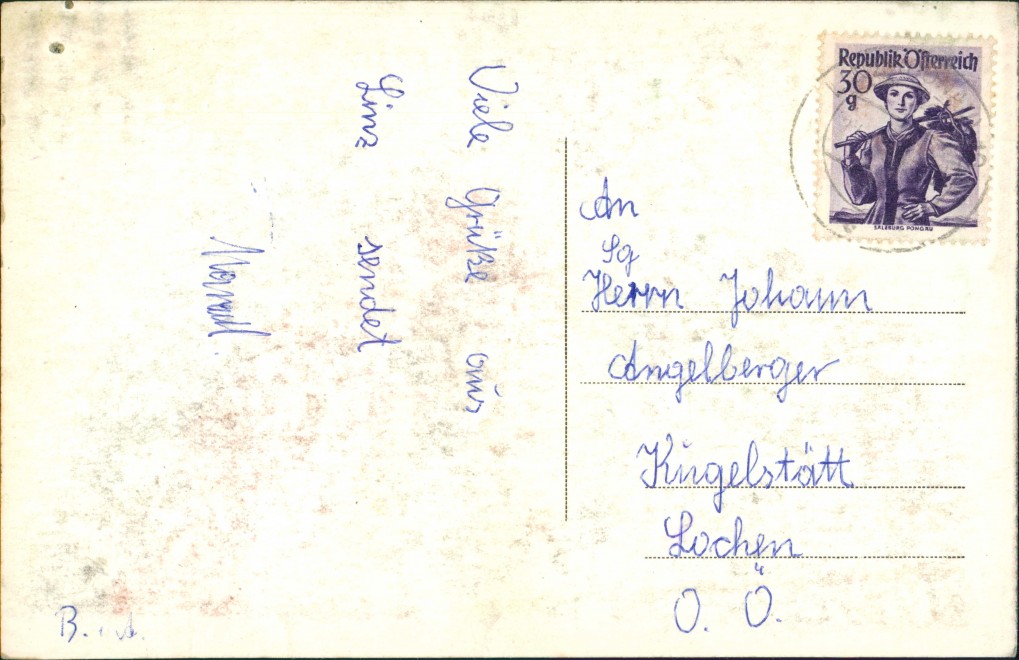 Viele Grüße aus
Linz sendet
Republik Österreich
30
g
SALZBURG PONGAU
An
Sg
Herrn Johann
Angelberger
Kugelstätt
Lochen
O. Ö.
B.